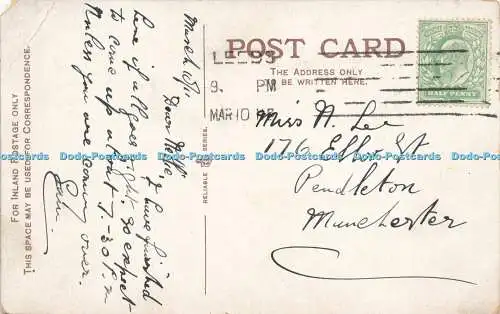 POST CARD
THE ADDRESS ONLY
BE WRITTEN HERE.
HALF PENNY
LEEDS
9. PM
MAR 10
Miss N. Lee
176 St
Pendleton
Manchester
FOR INLAND POSTAGE ONLY
THIS SPACE MAY BE USED FOR CORRESPONDENCE.
RELIABLE SERIES.
March
Dear Nellie,
I have finished
here if all goes right. So expect
to come up about 7-30 P.m
Unless you are coming over.
Dodo-Postcards Dodo-Postcards Dodo-Postcards Dodo-Postcards Dodo-Postcards Dodo-Postcards